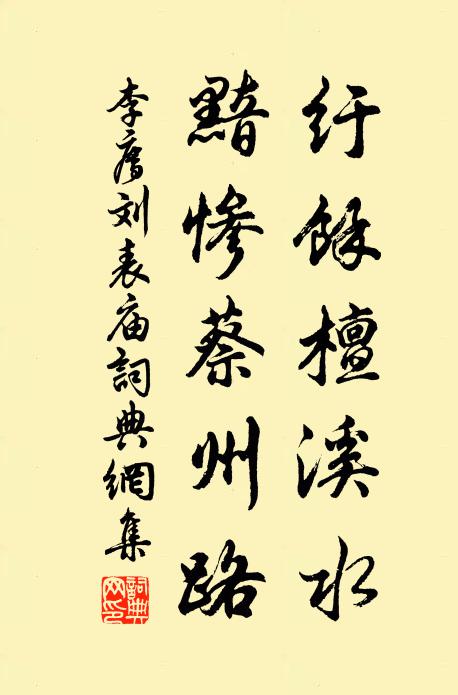 纡餘檀溪水
黯惨蔡州路
李廌刘表庙詞典網集
詞典網印